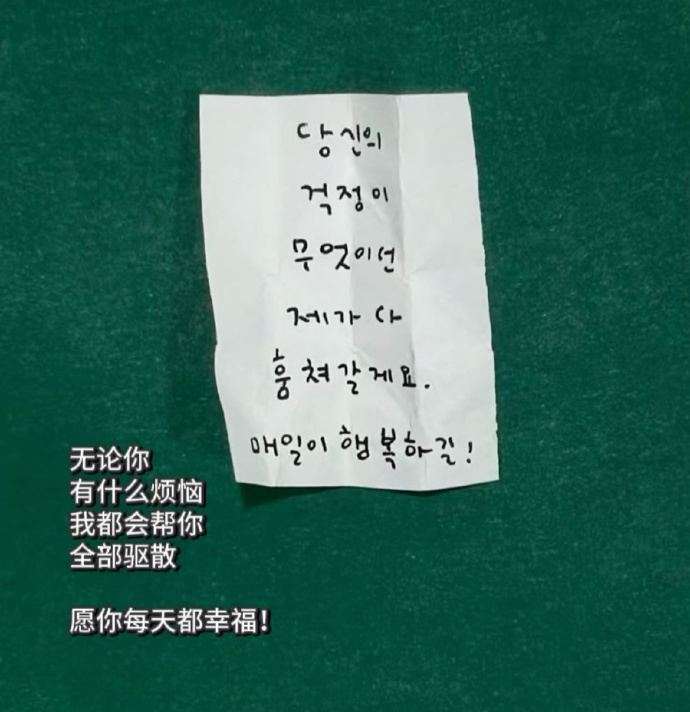 당신의
걱정이
무엇이던
제가 다
훔쳐갈게요.
매일이 행복하길!
无论你
有什么烦恼
我都会帮你
全部驱散
愿你每天都幸福！